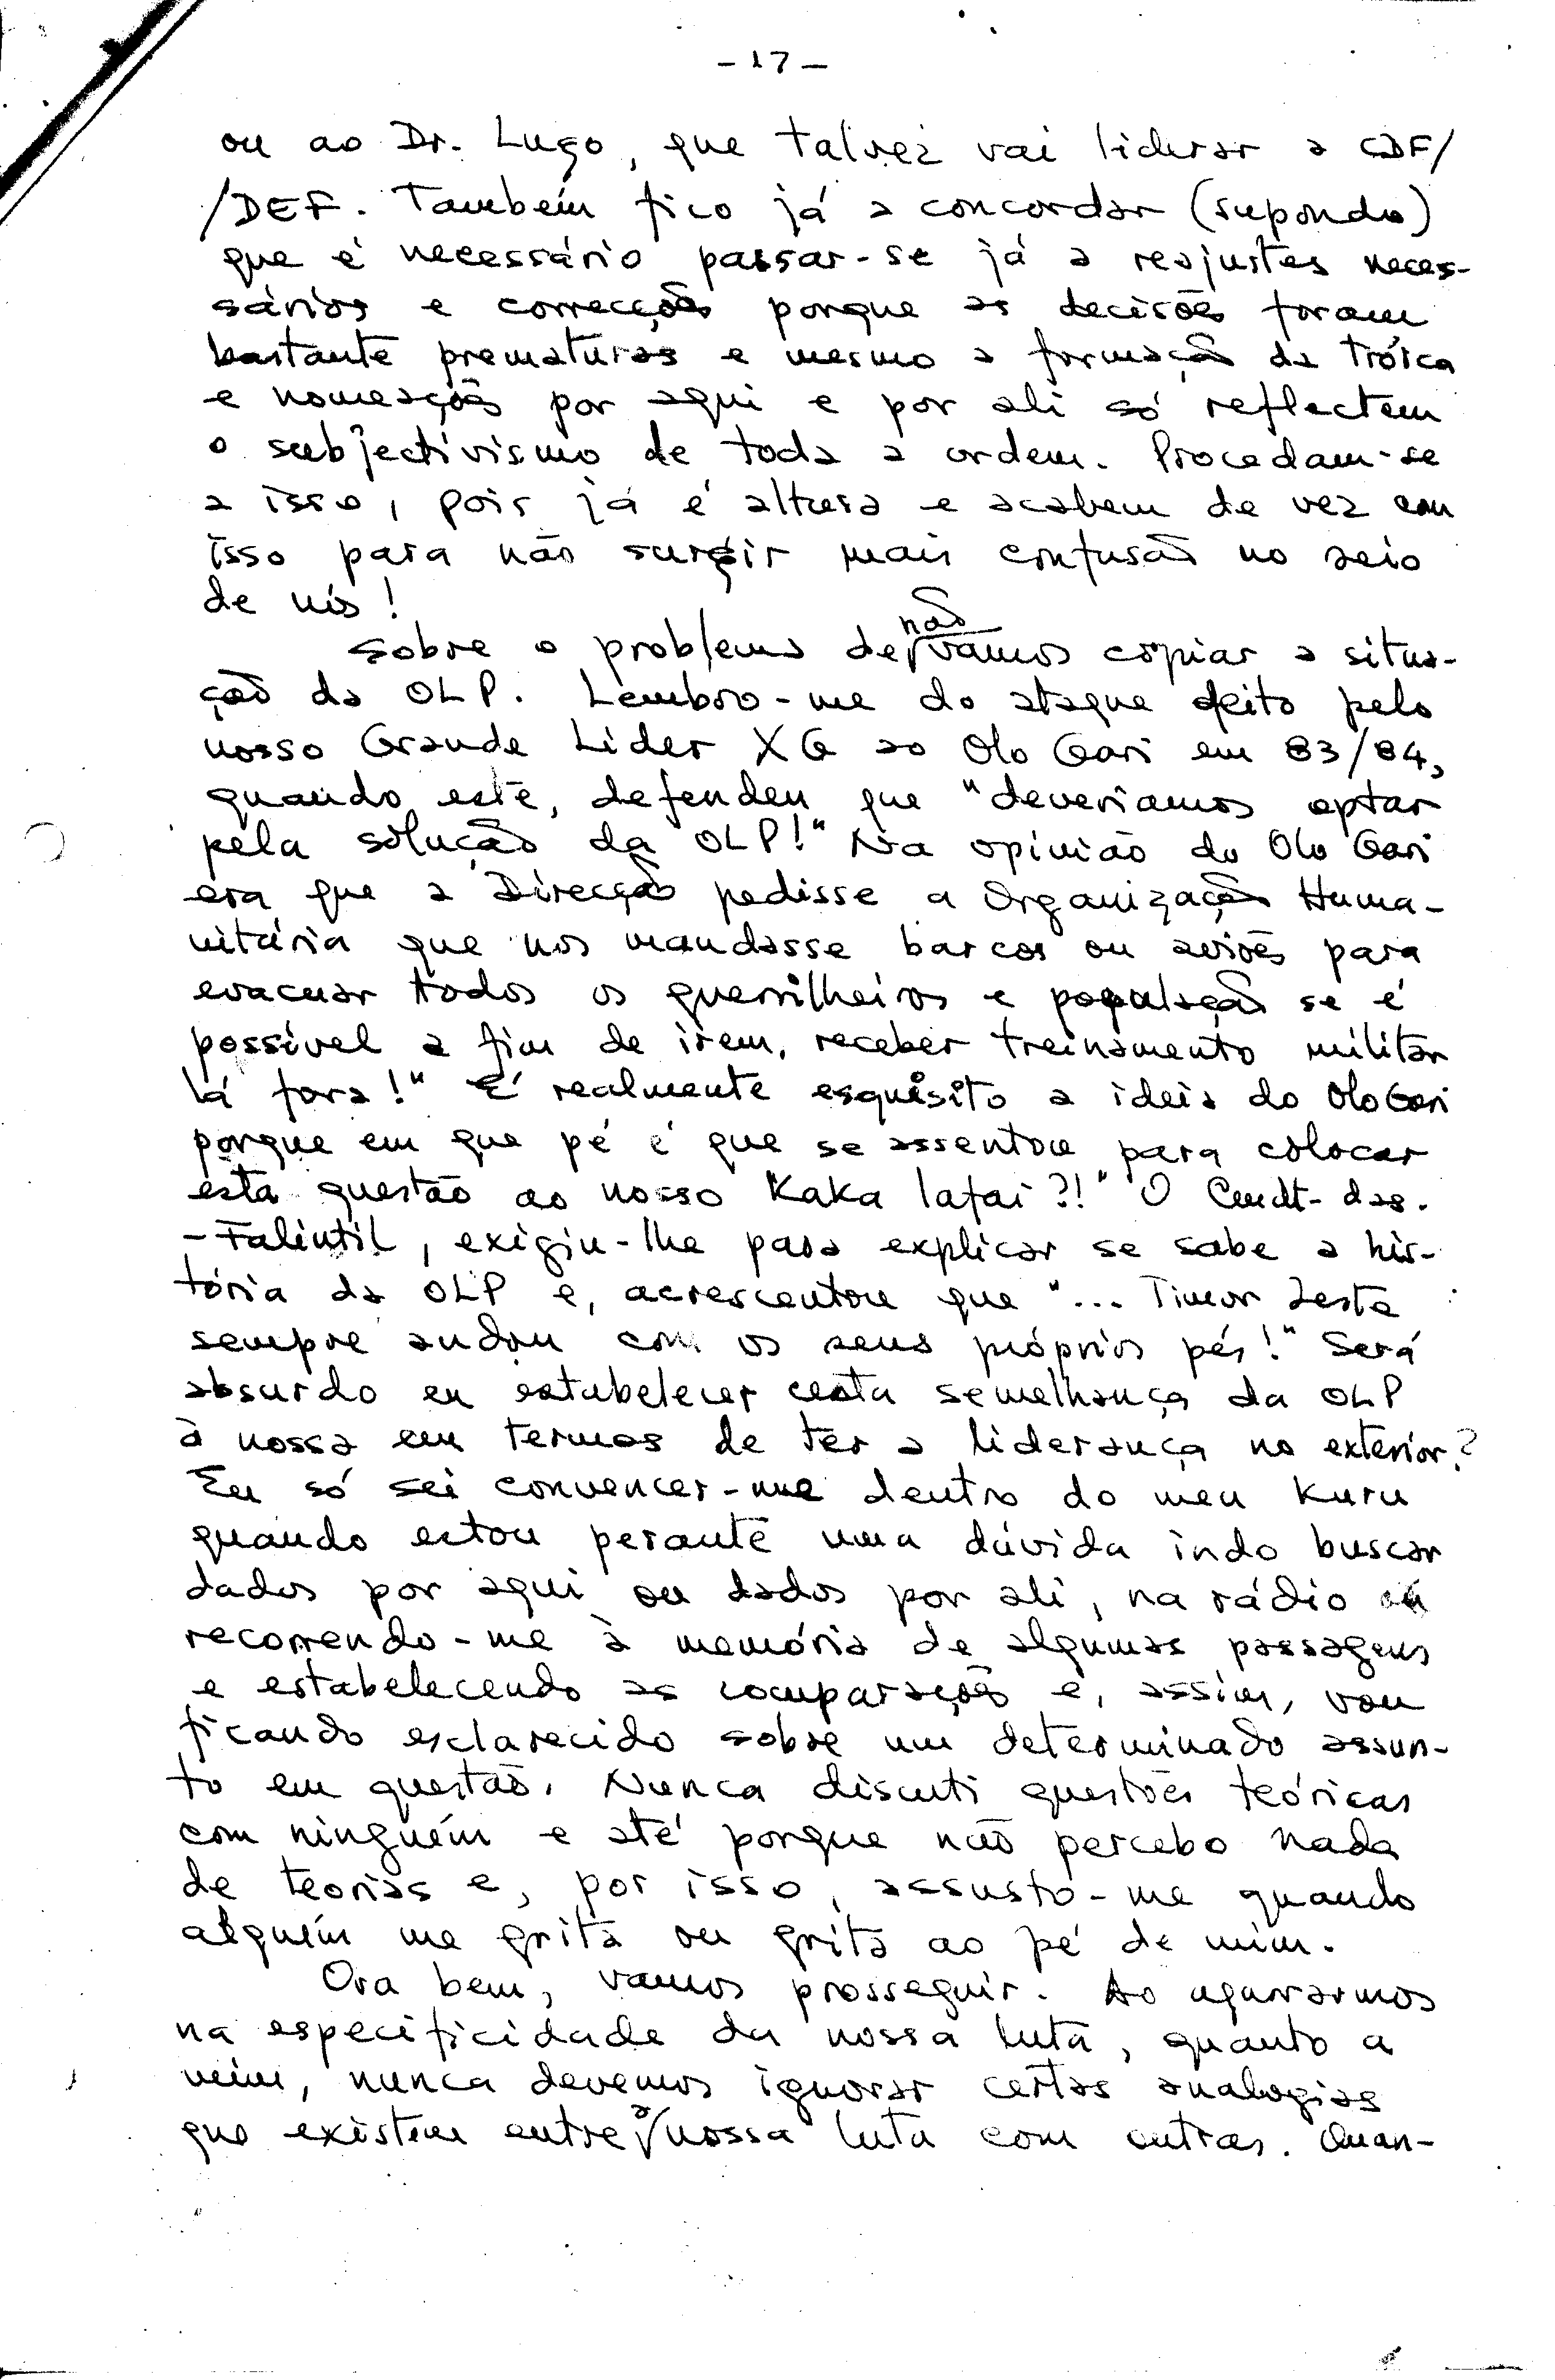 - 17 -
ou ao Dr. Lugo, que talvez vai liderar a CDF/
/DEF. Também fico já a concordar (supondo)
que é necessário passar-se já a reajustes neces-
sários e correcções porque as decisões foram
bastante prematuras e mesmo a formação da Tróica
e nomeações por aqui e por ali só reflectem
o subjectivismo de toda a ordem. Procedam-se
a isso, pois já é altura e acabem de vez com
isso para não surgir mais confusão no seio
de nós!
Sobre o problema de não vamos copiar a situa-
ção da OLP. Lembro-me do ataque feito pelo
nosso Grande Lider XG ao Olo Gari em 83/84,
quando este, defendeu que "deveriamos optar
pela solução da OLP!" Na opinião do Olo Gari
era que a Direcção pedisse a Organização Huma-
nitária que nos mandasse barcos ou aviões para
evacuar todos os guerrilheiros e população se é
possível a fim de irem, receber treinamento militar
lá fora!" É realmente esquisito a ideia do Olo Gari
porque em que pé é que se assentou para colocar
esta questão ao nosso Kaka lafai?!" O Cmdt- das.
-Falintil, exigiu-lhe para explicar se sabe a his-
tória da OLP e, acrescentou que "... Timor Leste
sempre andou com os seus próprios pés!" Será
absurdo eu estabelecer certa semelhança da OLP
à nossa em termos de ter a liderança no exterior?
Eu só sei convencer-me dentro do meu Kuru
quando estou perante uma dúvida indo buscar
dados por aqui ou dados por ali, na rádio ou
recorrendo-me à memória de algumas passagens
e estabelecendo as comparações e, assim, vou
ficando esclarecido sobre um determinado assun-
to em questão. Nunca discuti questões teóricas
com ninguém e até porque não percebo nada
de teorias e, por isso, assusto-me quando
alguém me grita ou grita ao pé de mim.
Ora bem, vamos prosseguir. Ao agarrarmos
na especificidade da nossa luta, quanto a
mim, nunca devemos ignorar certas analogias
que existem entre a nossa luta com outras. Quan-